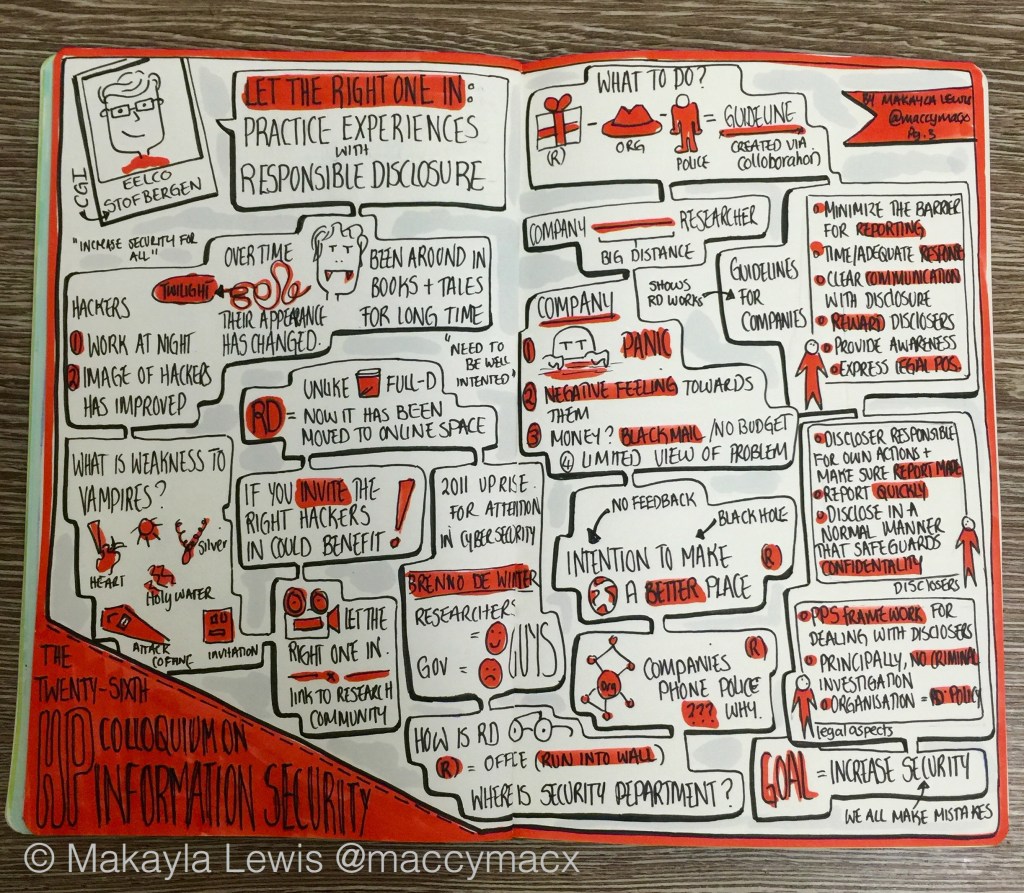 LET THE RIGHT ONE IN:
PRACTICE EXPERIENCES
WITH
RESPONSIBLE DISCLOSURE
CGI
EELCO
STOFBERGEN
"INCREASE SECURITY FOR
ALL"
HACKERS
1 WORK AT NIGHT
2 IMAGE OF HACKERS
HAS IMPROVED
OVER TIME
TWILIGHT
THEIR APPEARANCE
HAS CHANGED.
BEEN AROUND IN
BOOKS + TALES
FOR LONG TIME
"NEED TO
BE WELL
INTENTED"
UNLIKE FULL-D
RD = NOW IT HAS BEEN
MOVED TO ONLINE SPACE
WHAT IS WEAKNESS TO
VAMPIRES?
HEART
Silver
Holy WATER
ATTACK
COFFINE
INVITATION
IF YOU INVITE THE
RIGHT HACKERS
IN COULD BENEFIT!
LET THE
RIGHT ONE IN.
link to RESEARCH
COMMUNITY
2011 UPRISE
FOR ATTENTION
IN CYBER SECURITY
BRENNO DE WINTER
RESEARCHERS
=
GOV =
GUYS
HOW IS RD
R = OFFICE (RUN INTO WALL)
WHERE IS SECURITY DEPARTMENT?
THE
TWENTY-SIXTH
HP COLLOQUIUM ON
INFORMATION SECURITY
WHAT TO DO?
- - = GUIDELINE
(R) ORG POLICE
CREATED VIA
COLLOBORATION
BY MAKAYLA LEWIS
@MACCYMACX
Pg. 3
COMPANY RESEARCHER
BIG DISTANCE
SHOWS
RD WORKS
GUIDELINES
FOR
COMPANIES
COMPANY
1 PANIC
2 NEGATIVE FEELING TOWARDS
THEM
3 MONEY? BLACKMAIL/NO BUDGET
4 LIMITED VIEW OF PROBLEM
NO FEEDBACK
BLACK HOLE
INTENTION TO MAKE R
A BETTER PLACE
org
COMPANIES R
PHONE POLICE
??? WHY.
MINIMIZE THE BARRIER
FOR REPORTING
TIME/ADEQUATE RESPONE
CLEAR COMMUNICATION
WITH DISCLOSURE
REWARD DISCLOSERS
PROVIDE AWARENESS
EXPRESS LEGAL POS.
DISCLOSER RESPONSIBLE
FOR OWN ACTIONS +
MAKE SURE REPORT MADE
REPORT QUICKLY
DISCLOSE IN A
NORMAL MANNER
THAT SAFEGUARDS
CONFIDENTALITY
DISCLOSERS
PPS FRAMEWORK FOR
DEALING WITH DISCLOSERS
PRINCIPALLY, NO CRIMINAL
INVESTIGATION
ORGANISATION = RD POLICY
legal aspects
GOAL = INCREASE SECURITY
WE ALL MAKE MISTAKES
© Makayla Lewis @maccymacx